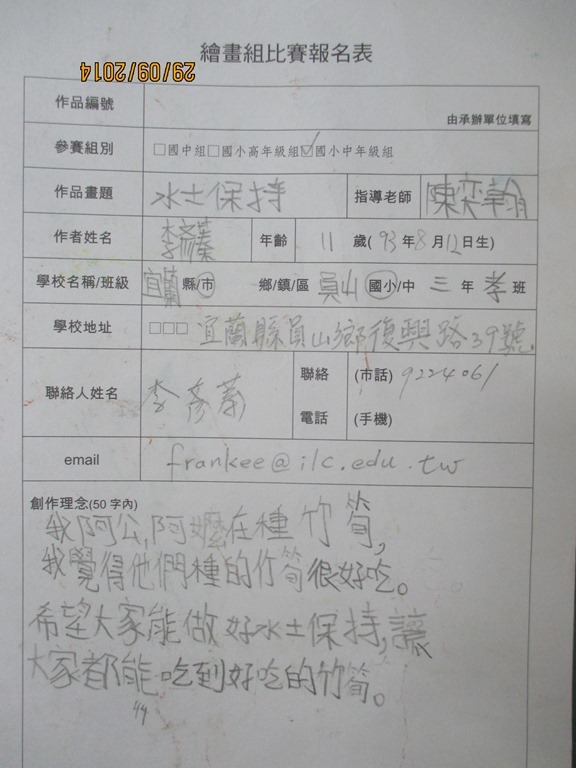 繪畫組比賽報名表
29/09/2014
作品編號
由承辦單位填寫
參賽組別 □國中組□國小高年級組☑國小中年級組
作品畫題 水土保持 指導老師 陳奕翰
作者姓名 年齡 11 歲( 93 年 8 月 12 日生)
學校名稱/班級 宜蘭 縣/市 鄉/鎮/區 員山 國小/中 三 年 孝 班
學校地址 □□□ 宜蘭縣員山鄉復興路39號
聯絡人姓名 李彥 聯絡 (市話) 9224061
電話 (手機)
email frankee@ilc.edu.tw
創作理念(50 字內)
我阿公,阿嬤在種竹筍,
我覺得他們種的竹筍很好吃。
希望大家能做好水土保持,讓
大家都能吃到好吃的竹筍。
44